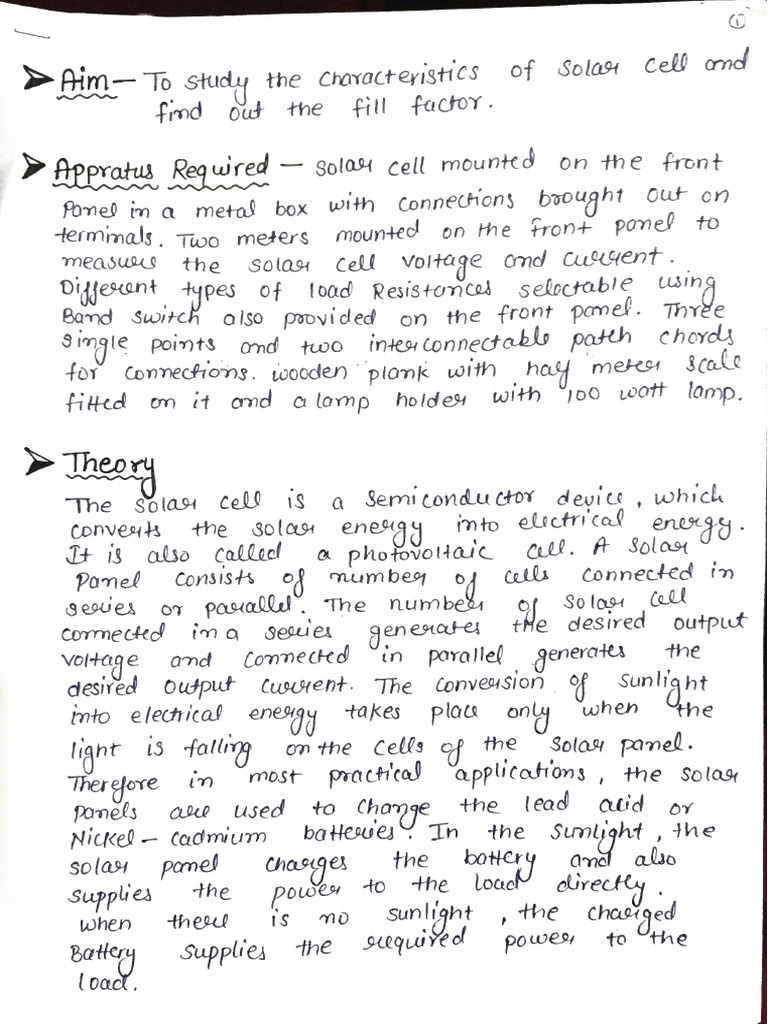 ①
➤ Aim — To study the characteristics of solar cell and
find out the fill factor.
➤ Appratus Required — solar cell mounted on the front
Panel in a metal box with connections brought out on
terminals. Two meters mounted on the front panel to
measure the solar cell voltage and current.
Different types of load Resistances selectable using
Band switch also provided on the front panel. Three
single points and two interconnectable patch chords
for connections. wooden plank with half meter scale
fitted on it and a lamp holder with 100 watt lamp.
➤ Theory
The solar cell is a semiconductor device, which
converts the solar energy into electrical energy.
It is also called a photovoltaic cell. A solar
Panel consists of number of cells connected in
series or parallel. The number of solar cell
connected in a series generates the desired output
voltage and connected in parallel generates the
desired output current. The conversion of sunlight
into electrical energy takes place only when the
light is falling on the cells of the solar panel.
Therefore in most practical applications, the solar
panels are used to change the lead acid or
Nickel - cadmium batteries. In the sunlight, the
solar panel charges the battery and also
supplies the power to the load directly.
when there is no sunlight, the charged
Battery supplies the required power to the
load.